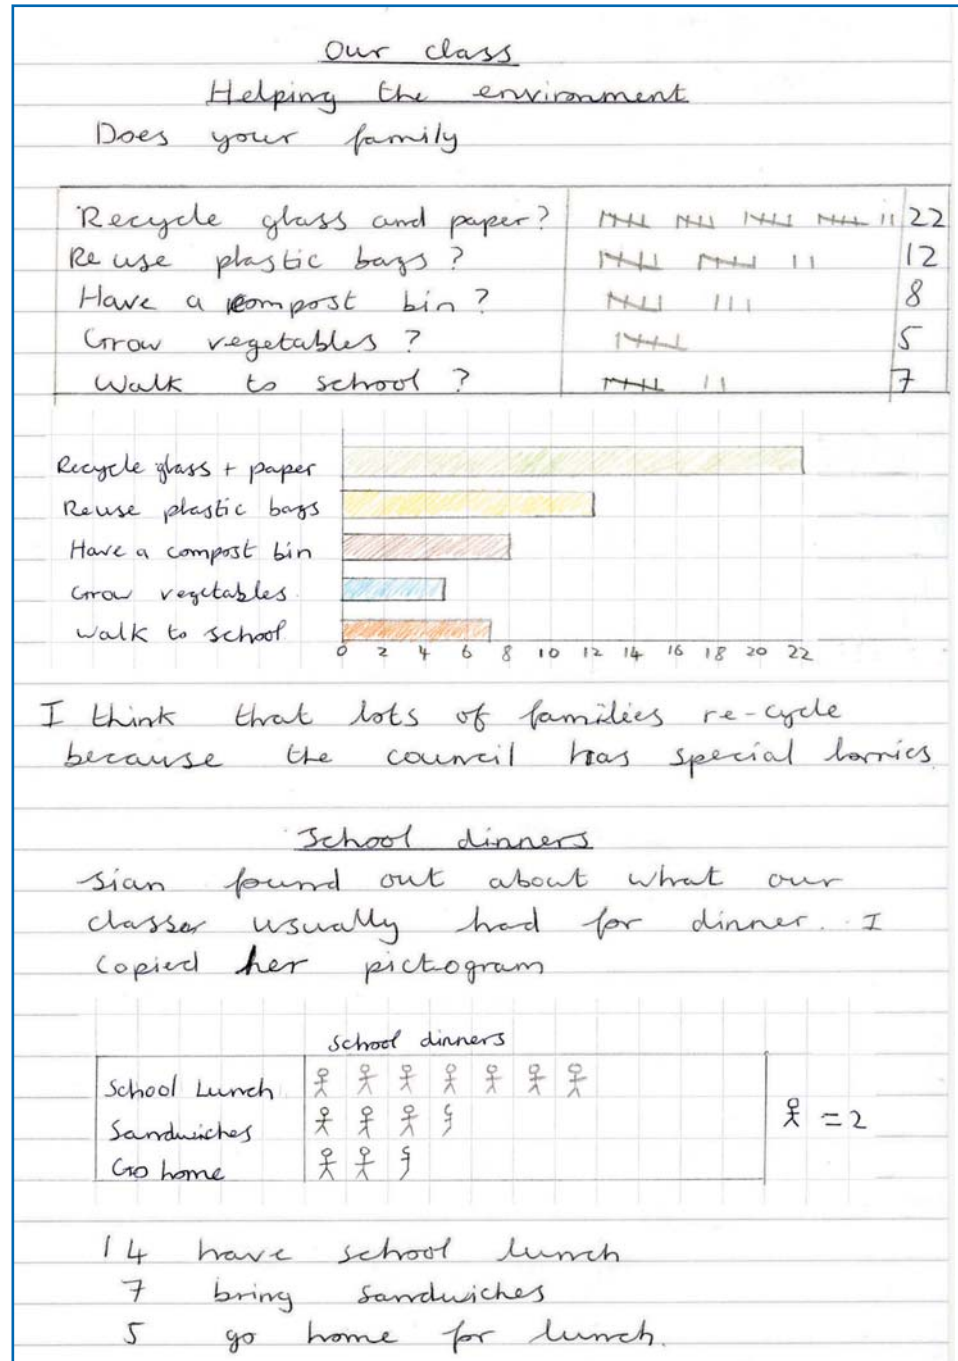 Our class
Helping the environment
Does your family
Recycle glass and paper? 22
Re use plastic bags? 12
Have a compost bin? 8
Grow vegetables? 5
Walk to school? 7
Recycle glass + paper
Reuse plastic bags
Have a compost bin
Grow vegetables
Walk to school
0 2 4 6 8 10 12 14 16 18 20 22
I think that lots of families re-cycle
because the council has special lorries
School dinners
Sian found out about what our
classer usually had for dinner. I
copied her pictogram
School dinners
School Lunch
Sandwiches
= 2
Go home
14 have school lunch
7 bring sandwiches
5 go home for lunch.